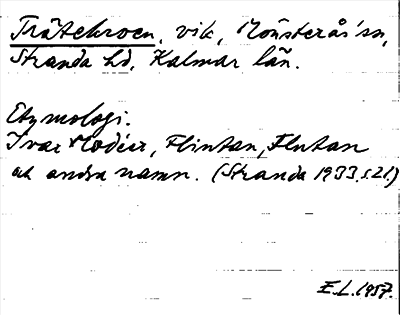 Trätekroen, vik, Mönsterås sn,
Stranda hd, Kalmar län.
Etymologi.
Ivar Modéer, Flintan, Flutan
och andra namn. (Stranda 1933 s. 21)
E.L. 1957.